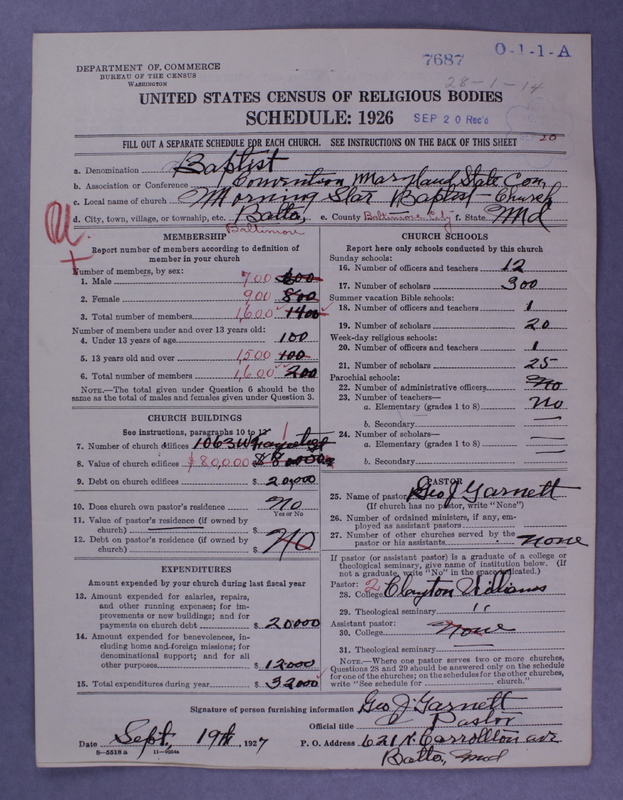 7687
O-1-1-A
DEPARTMENT OF COMMERCE
BUREAU OF THE CENSUS
WASHINGTON
28-1-14
UNITED STATES CENSUS OF RELIGIOUS BODIES
SCHEDULE: 1926
SEP 20 Rec'd
FILL OUT A SEPARATE SCHEDULE FOR EACH CHURCH. SEE INSTRUCTIONS ON THE BACK OF THIS SHEET
20
a. Denomination Baptist
b. Association or Conference Convention Maryland State Con.
c. Local name of church Morning Star Baptist Church
d. City, town, village, or township, etc. Balto, e. County Baltimore City f. State Md
Baltimore
MEMBERSHIP
Report number of members according to definition of
member in your church
Number of members, by sex:
1. Male 700 600
2. Female 900 800
3. Total number of members 1,600 1400
Number of members under and over 13 years old:
4. Under 13 years of age 100
5. 13 years old and over 1,500 100
6. Total number of members 1,600 200
NOTE.—The total given under Question 6 should be the
same as the total of males and females given under Question 3.
CHURCH BUILDINGS
See instructions, paragraphs 10 to 12
7. Number of church edifices 1063 W 1
8. Value of church edifices $80,000
9. Debt on church edifices $ 20,000
10. Does church own pastor's residence No
Yes or No
11. Value of pastor's residence (if owned by
church) $
12. Debt on pastor's residence (if owned by
church) $ No
EXPENDITURES
Amount expended by your church during last fiscal year
13. Amount expended for salaries, repairs,
and other running expenses; for im-
provements or new buildings; and for
payments on church debt $ 20000
14. Amount expended for benevolences, in-
cluding home and foreign missions; for
denominational support; and for all
other purposes $ 12000
15. Total expenditures during year $ 32000
CHURCH SCHOOLS
Report here only schools conducted by this church
Sunday schools:
16. Number of officers and teachers 12
17. Number of scholars 300
Summer vacation Bible schools:
18. Number of officers and teachers 1
19. Number of scholars 20
Week-day religious schools:
20. Number of officers and teachers 1
21. Number of scholars 25
Parochial schools:
22. Number of administrative officers No
23. Number of teachers—
a. Elementary (grades 1 to 8) No
b. Secondary —
24. Number of scholars—
a. Elementary (grades 1 to 8) —
b. Secondary —
PASTOR
25. Name of pastor Geo J. Garnett
(If church has no pastor, write "None")
26. Number of ordained ministers, if any, em-
ployed as assistant pastors
27. Number of other churches served by the
pastor or his assistants None
If pastor (or assistant pastor) is a graduate of a college or
theological seminary, give name of institution below. (If
not a graduate, write "No" in the space indicated.)
Pastor: 2
28. College Clayton Williams
29. Theological seminary "
Assistant pastor:
30. College None
31. Theological seminary —
NOTE.—Where one pastor serves two or more churches,
Questions 28 and 29 should be answered only on the schedule
for one of the churches; on the schedules for the other churches,
write "See schedule for church."
Signature of person furnishing information Geo J. Garnett
Official title Pastor
Date Sept. 19th, 1927 P. O. Address 621 N. Carrollton ave
8—5518 a
Balto, Md